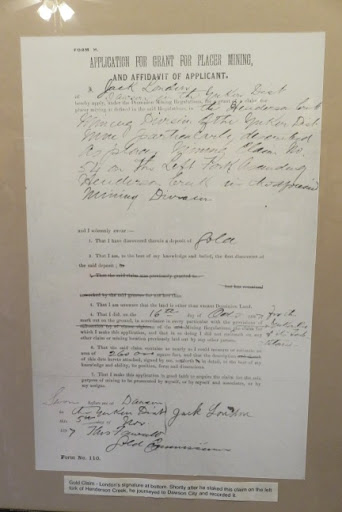 FORM H.
APPLICATION FOR GRANT FOR PLACER MINING,
AND AFFIDAVIT OF APPLICANT.
I, Jack London
of Dawson in the Yukon Dist
hereby apply, under the Dominion Mining Regulations, for a grant of a claim for
placer mining as defined in the said Regulations, in the Henderson Creek
Mining Division of the Yukon Dist
more particularly described
as placer Mining Claim No.
54 on the Left Fork Ascending
Henderson Creek in
Mining Division
and I solemnly swear:—
1. That I have discovered therein a deposit of gold
2. That I am, to the best of my knowledge and belief, the first discoverer of
the said deposit;
3. That the said claim was previously granted to
4. That I am unaware that the land is other than vacant Dominion Land.
5. That I did, on the 16th day of Oct
mark out on the ground, in accordance in every particular with the provisions of
Mining Regulations,
which I make this application, and that in so doing I did not encroach on any
other claim or mining location previously laid out by any other person.
6. That the said claim contains as nearly as I could measure or estimate an
area of 260 000 square feet, and that the description
of this date hereto attached, signed by me, sets forth in detail, to the best of my
knowledge and ability, its position, form and dimensions.
7. That I make this application in good faith to acquire the claim for the sole
purpose of mining to be prosecuted by myself, or by myself and associates, or by
my assigns.
Sworn before me at Dawson
in the Yukon Dist
this 5 day of Nov
Jack London
Gold Commissioner
Form No. 110.
Gold Claim - London's signature at bottom. Shortly after he staked this claim on the left
fork of Henderson Creek, he journeyed to Dawson City and recorded it.